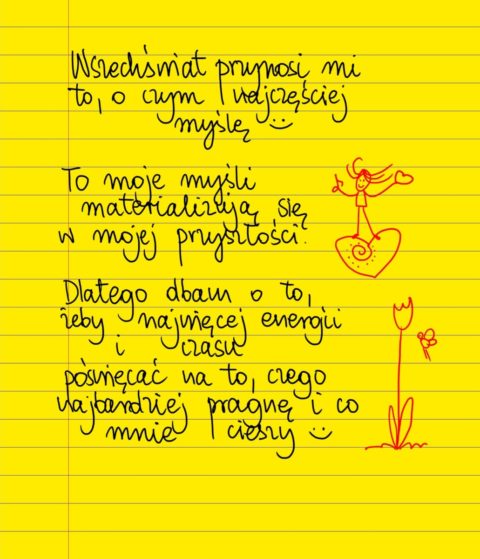 Wszechświat przynosi mi
to, o czym najczęściej
myślę :)
To moje myśli
materializują się
w mojej przyszłości.
Dlatego dbam o to,
żeby najwięcej energii
i czasu
poświęcać na to, czego
najbardziej pragnę i co
mnie cieszy :)